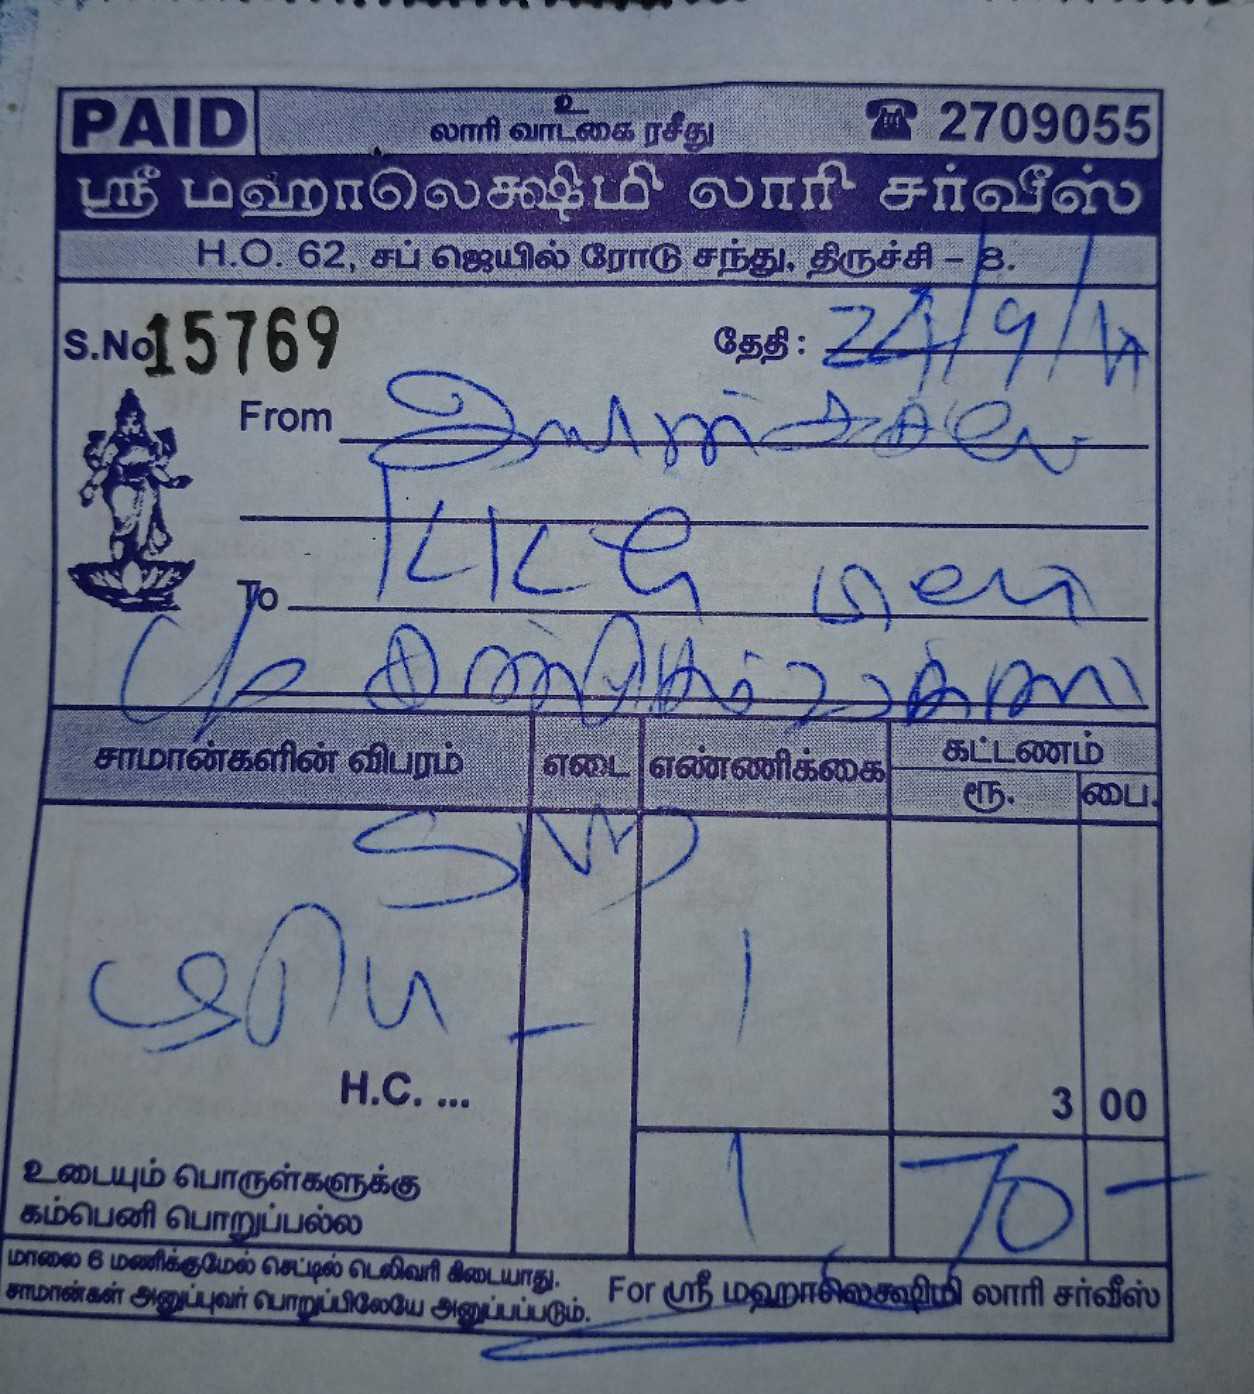 PAID
உ
லாரி வாடகை ரசீது
☎ 2709055
ஸ்ரீ மஹாலெக்ஷ்மி லாரி சர்வீஸ்
H.O. 62, சப் ஜெயில் ரோடு சந்து, திருச்சி – 8.
S.No 15769
தேதி : 24/9/
From
To
சாமான்களின் விபரம் எடை எண்ணிக்கை கட்டணம்
ரூ. பை.
1
H.C. ... 3 00
உடையும் பொருள்களுக்கு
கம்பெனி பொறுப்பல்ல
1 70 –
மாலை 6 மணிக்குமேல் செட்டில் டெலிவரி கிடையாது.
சாமான்கள் அனுப்புவர் பொறுப்பிலேயே அனுப்பப்படும்.
For ஸ்ரீ மஹாலெக்ஷ்மி லாரி சர்வீஸ்